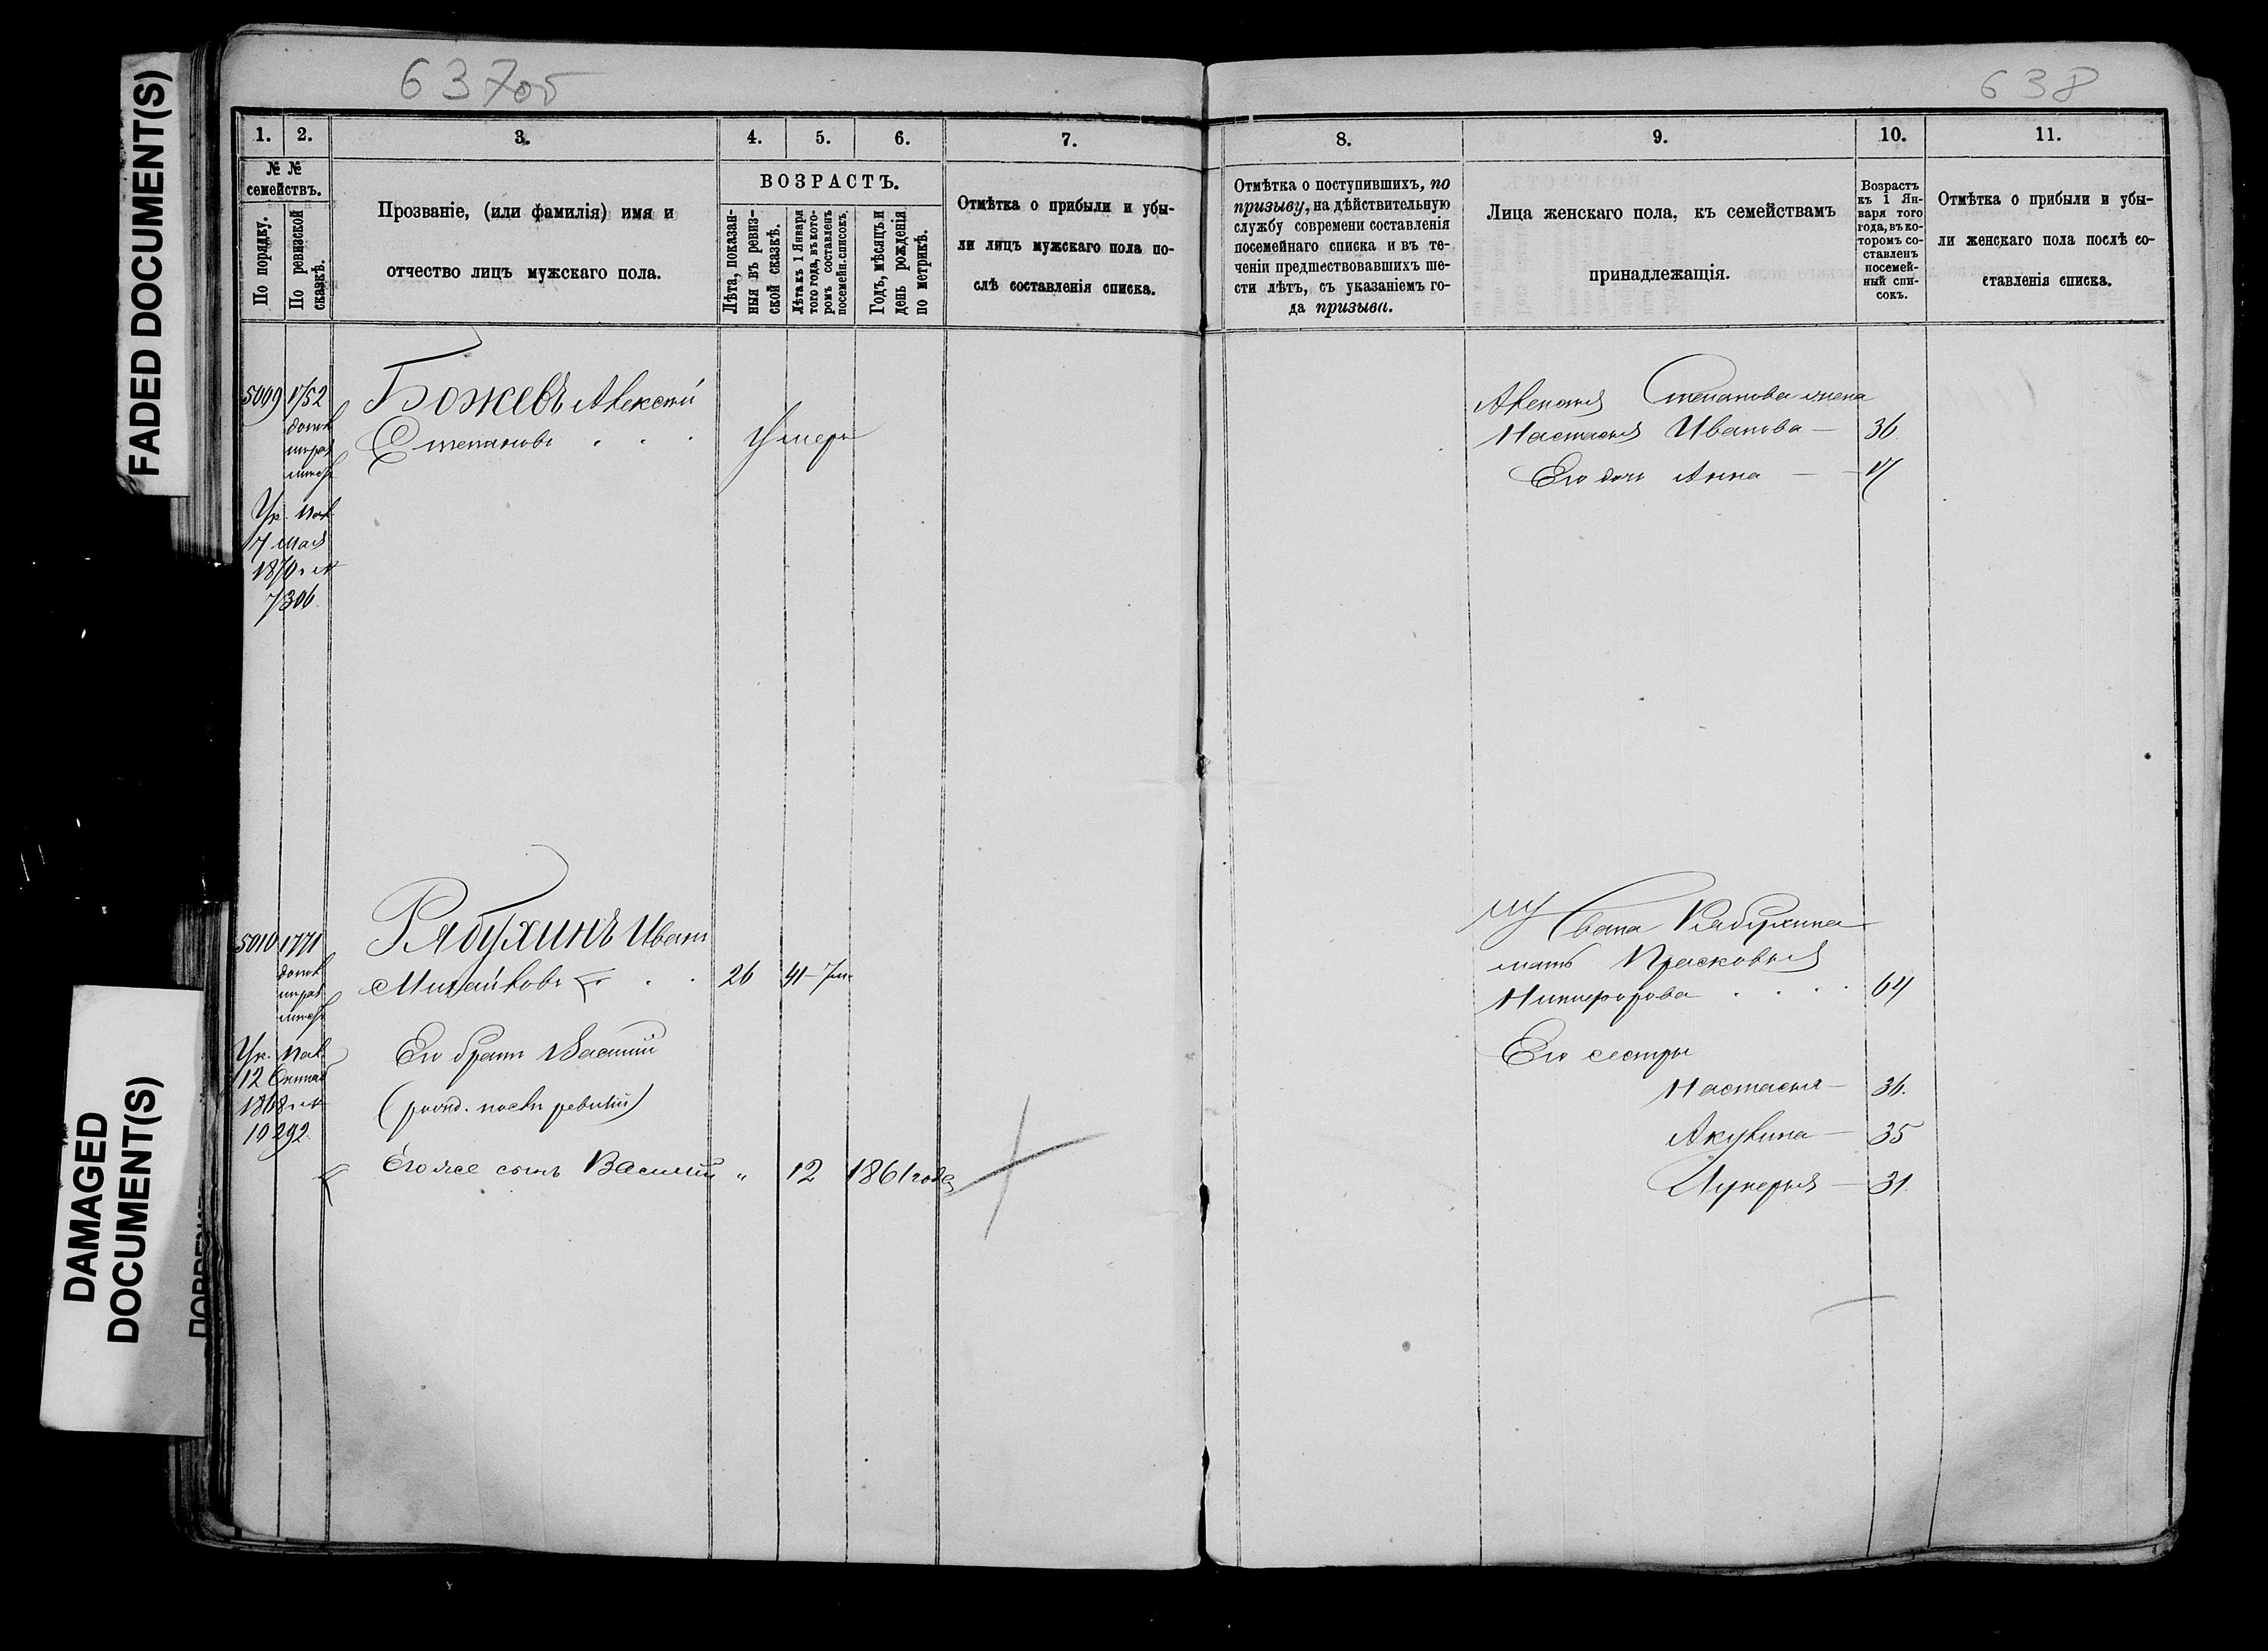 FADED DOCUMENT(S)
DAMAGED
DOCUMENT(S)
637об
638
1. 2. 3. 4. 5. 6. 7.
№ №
семействъ.
По порядку.
По ревизской
сказкѣ.
Прозваніе, (или фамилія) имя и
отчество лицъ мужскаго пола.
ВОЗРАСТЪ.
Лѣта, показан-
ныя въ ревиз-
ской сказкѣ.
Лѣта къ 1 Января
того года, въ кото-
ромъ составленъ
посемейн. списокъ.
Годъ, мѣсяцъ и
день рожденія
по метрикѣ.
Отмѣтка о прибыли и убы-
ли лицъ мужскаго пола по-
слѣ составленія списка.
5009
Божевъ Алексѣй
Степановъ . . . Умеръ
7 мая
7306
5010 1771
Рябухинъ Иванъ
Михайловъ . . 26 41
Его братъ Василій
(рожд. послѣ ревизіи)
12
10292
Его же сынъ Василій " 12 1861 года
8. 9. 10. 11.
Отмѣтка о поступившихъ, по
призыву, на дѣйствительную
службу современи составленія
посемейнаго списка и въ те-
ченіи предшествовавшихъ ше-
сти лѣтъ, съ указаніемъ го-
да призыва.
Лица женскаго пола, къ семействамъ
принадлежащія.
Возрастъ
къ 1 Ян-
варя того
года, въ ко-
торомъ со-
ставленъ
посемей-
ный спи-
сокъ.
Отмѣтка о прибыли и убы-
ли женскаго пола послѣ со-
ставленія списка.
Алексѣя Степанова жена
Настасья Иванова — 36
Его дочь Анна — 17
Ивана Рябухина
мать Прасковья
Никифорова . . . . 64
Его сестры
Настасья — 36.
Акулина — 35
Лукерья — 31.